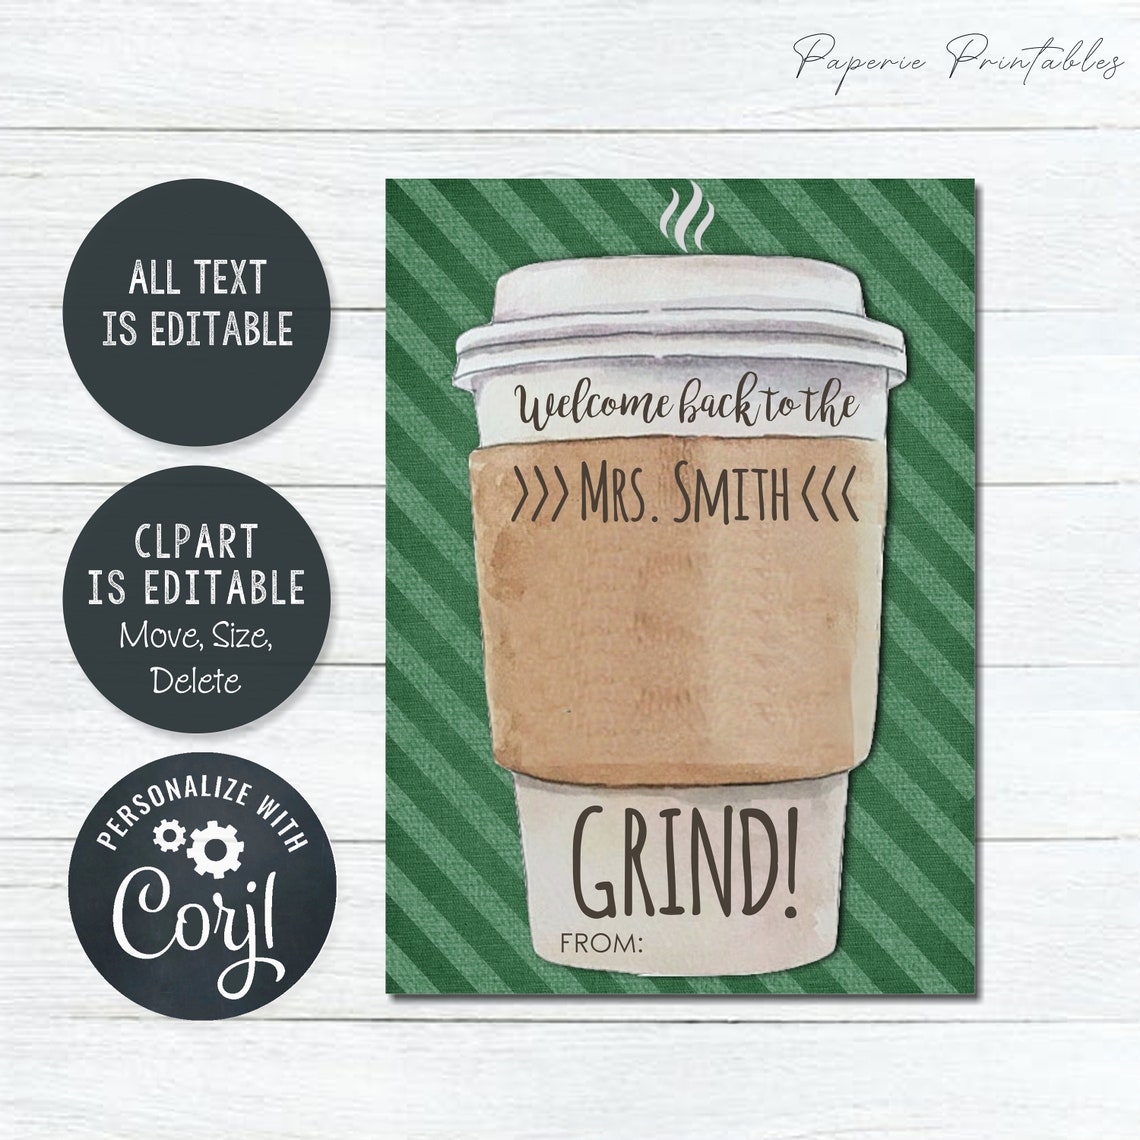 Paperie Printables
ALL TEXT
IS EDITABLE
CLPART
IS EDITABLE
Move, Size,
Delete
PERSONALIZE WITH
Corjl
Welcome back to the
>>> MRS. SMITH <<<
GRIND!
FROM: